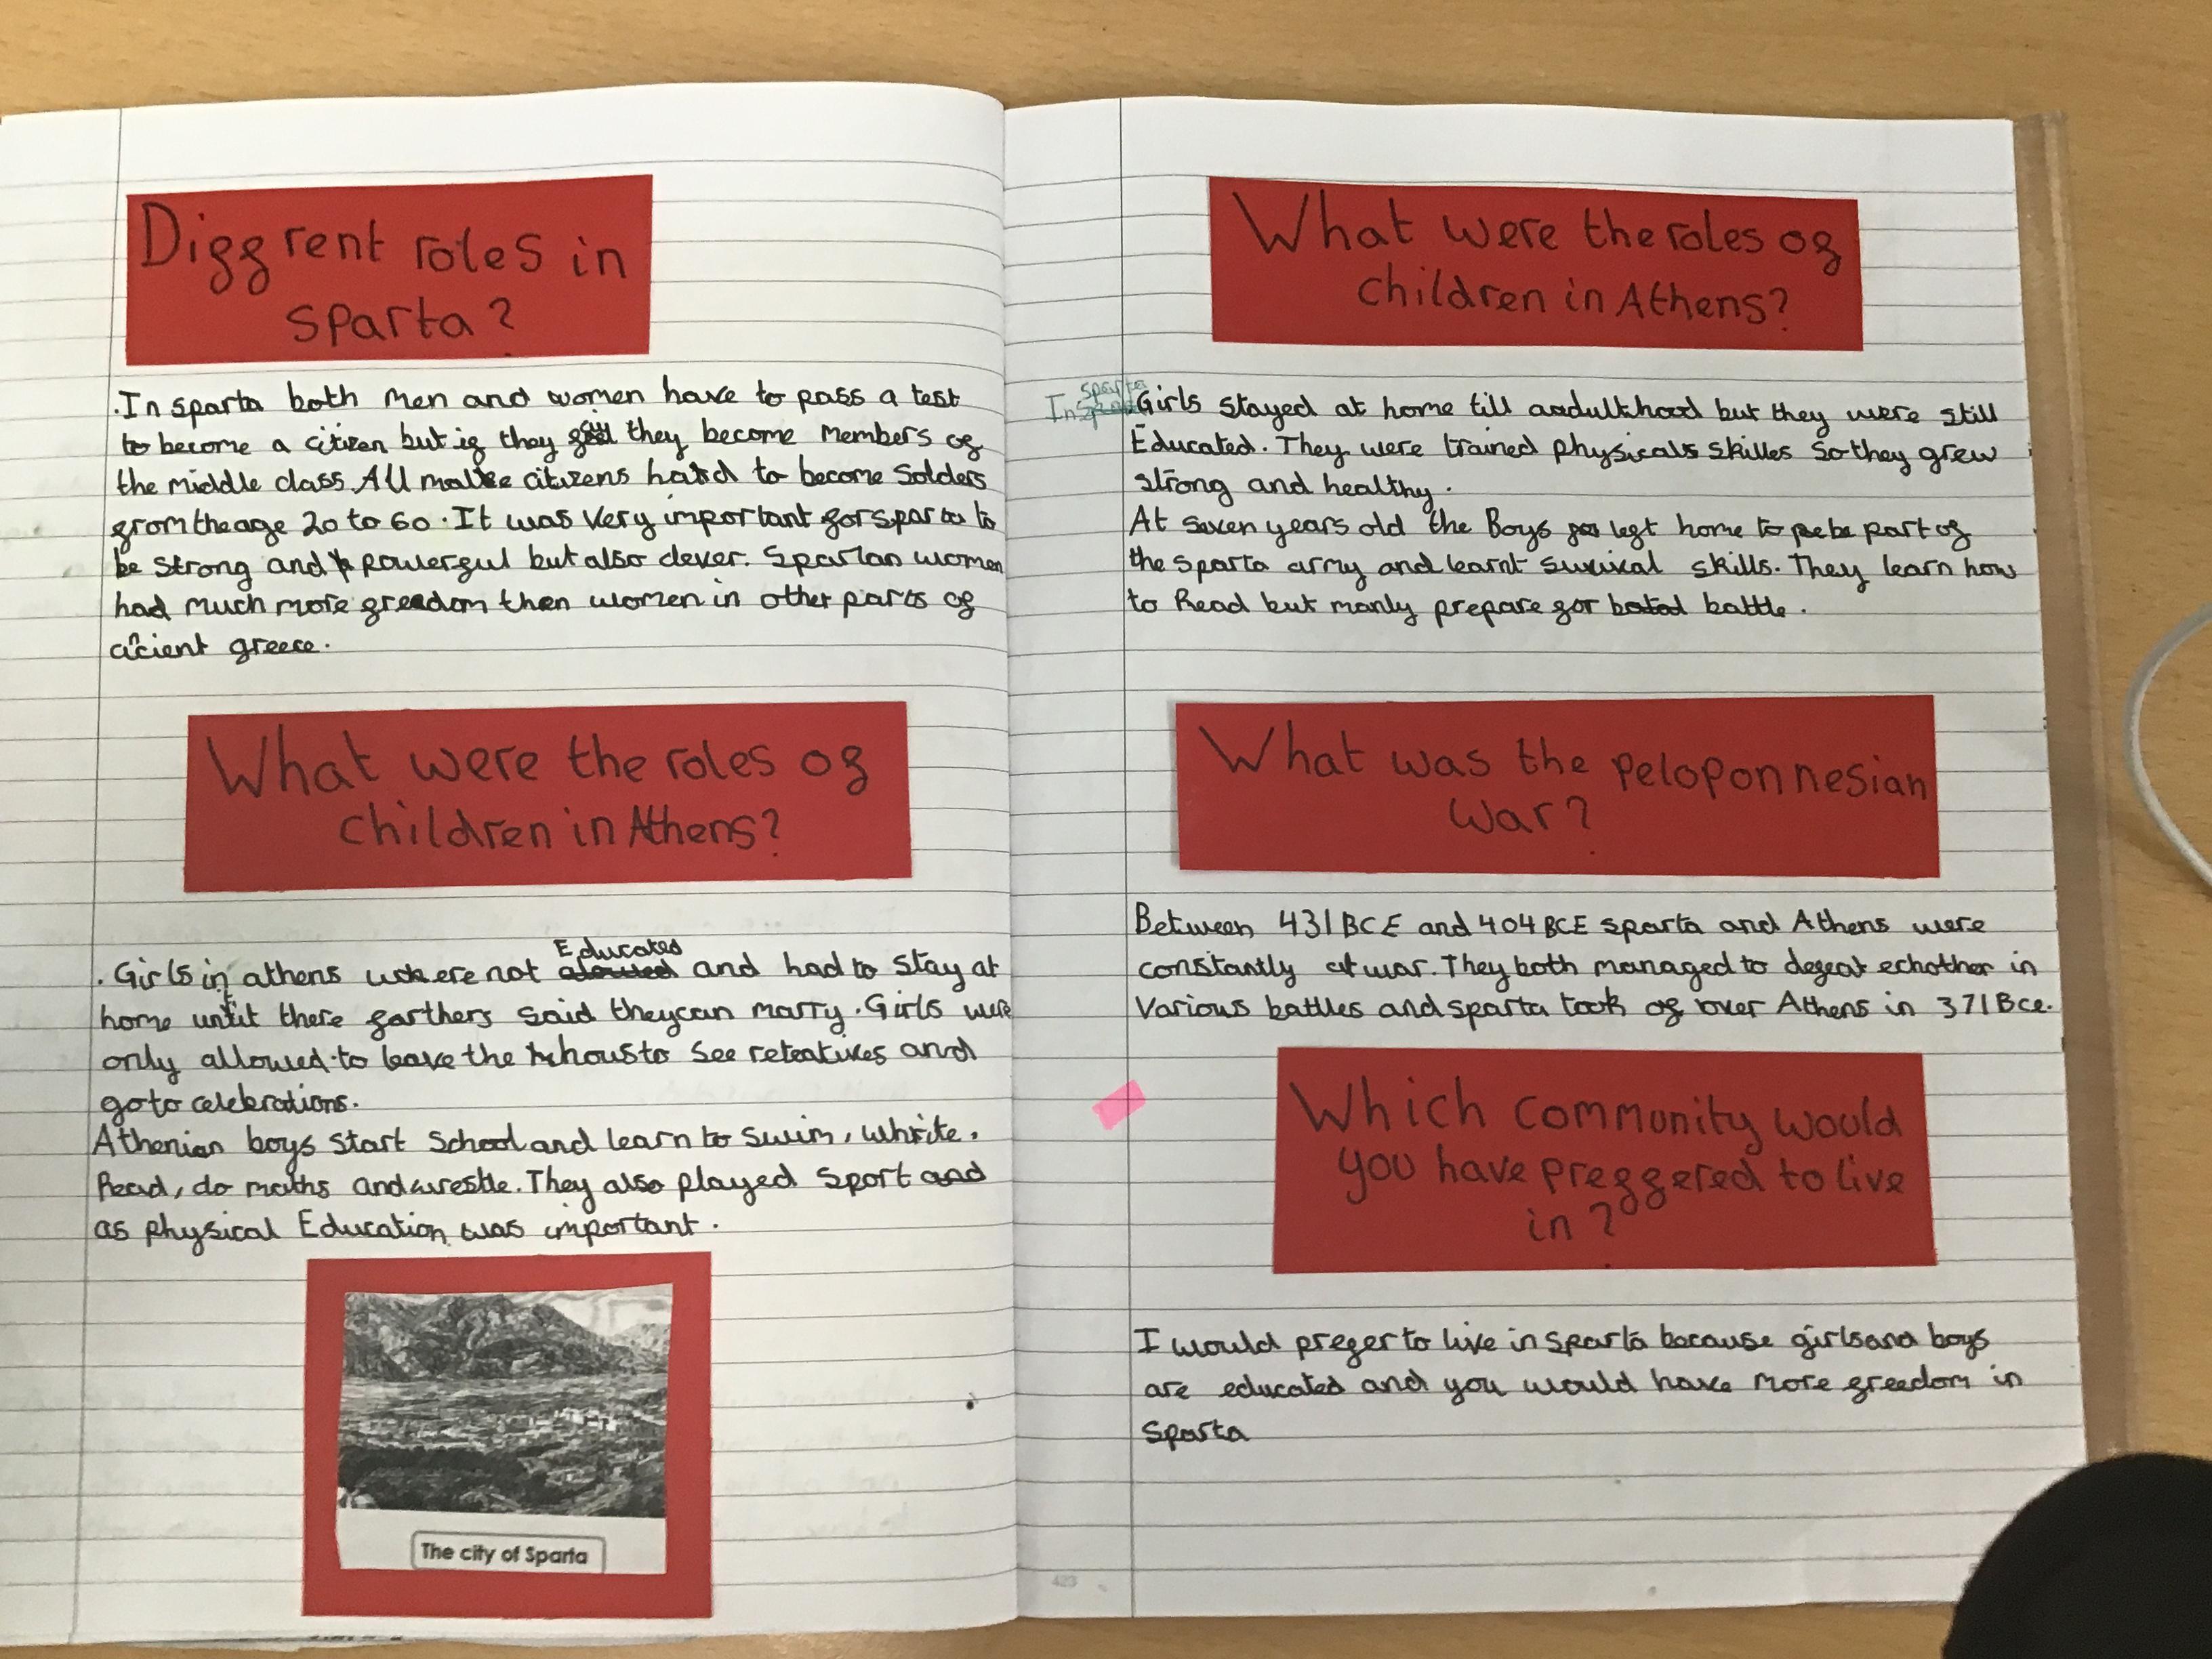 Diffrent roles in
sparta?
. In sparta both Men and women have to pass a test
to become a citizen but if they fail they become Members of
the middle class. All male citizens had to become Solders
from the age 20 to 60. It was Very important for sparta to
be strong and powerful but also clever. Spartan women
had much more freedom then women in other parts of
acient greece.
What were the roles of
children in Athens?
Educated
. Girls in athens were not allowed and had to stay at
home until there farthers said they can marry. Girls were
only allowed to leave the hous to see releatives and
go to celebrations.
Athenian boys start School and learn to swim, whrite,
Read, do maths and wrestle. They also played sport and
as physical Education was important.
The city of Sparta
What were the roles of
children in Athens?
sparta
In Girls stayed at home till aadulthood but they were still
Educated. They were trained physicals skilles so they grew
strong and healthy.
At seven years old the Boys left home to be part of
the sparta army and learnt survival skills. They learn how
to Read but manly prepare for batal battle.
What was the Peloponnesian
War?
Between 431 BCE and 404 BCE sparta and Athens were
constantly at war. They both managed to defeat echother in
various battles and sparta took of over Athens in 371 Bce.
Which community would
you have preffered to live
in?
I would prefer to live in sparta because girls and boys
are educated and you would have more freedom in
Sparta